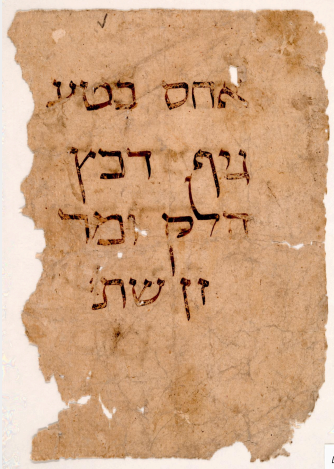 אחס בטע
גיף דכץ
הלק ומר
זן שת'